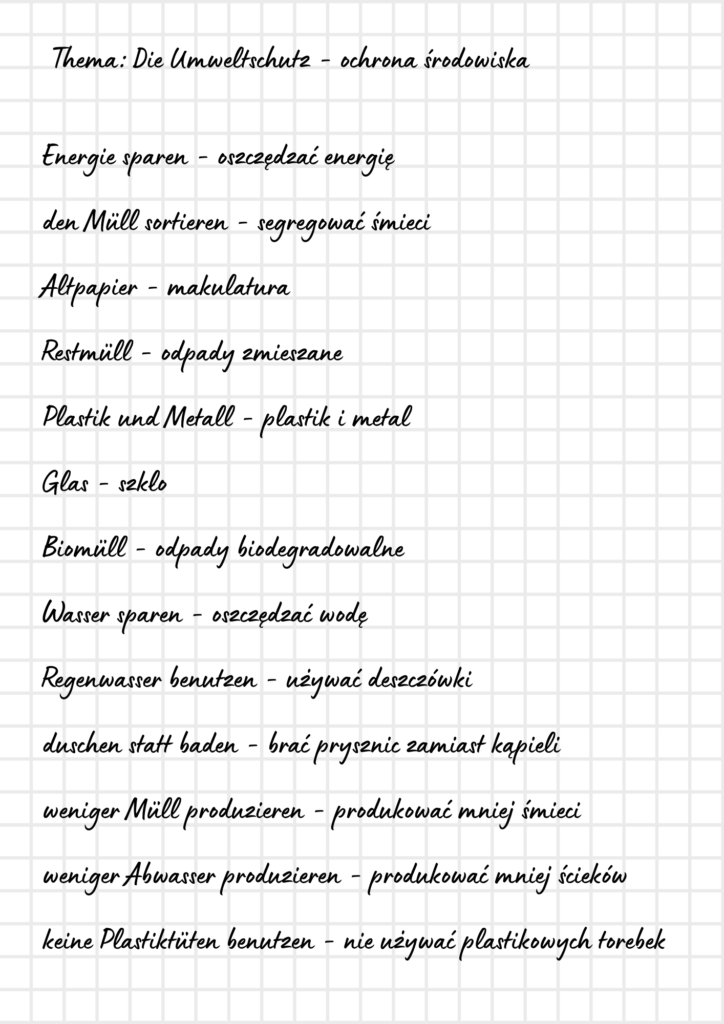 Thema: Die Umweltschutz - ochrona środowiska
Energie sparen - oszczędzać energię
den Müll sortieren - segregować śmieci
Altpapier - makulatura
Restmüll - odpady zmieszane
Plastik und Metall - plastik i metal
Glas - szkło
Biomüll - odpady biodegradowalne
Wasser sparen - oszczędzać wodę
Regenwasser benutzen - używać deszczówki
duschen statt baden - brać prysznic zamiast kąpieli
weniger Müll produzieren - produkować mniej śmieci
weniger Abwasser produzieren - produkować mniej ścieków
keine Plastiktüten benutzen - nie używać plastikowych torebek